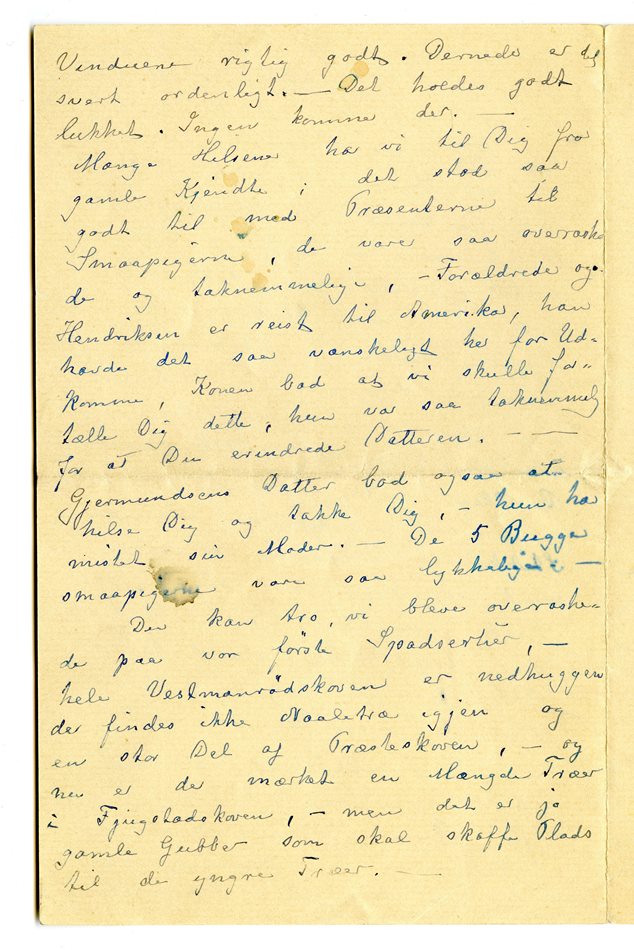 Vinduene rigtig godt. Dernede er det
svert ordenligt. — Det holdes godt
lukket. Ingen komme der. —
Mange Hilsene har vi til Dig fra
gamle Kjendte i det stod saa
godt til med Præsenterne til
Smaapigerne, de vare saa overraske
de og taknemmelige, — Forældrede og.
Hendriksen er reist til Amerika, han
havde det saa vanskeligt her for Ud-
komme, Konen bad at vi skulle for-
tælle Dig dette, hun var saa taknemmelig
for at Du erindrede Datteren. — —
Gjermundsens Datter bad ogsaa at
hilse Dig og takke Dig, — hun har
mistet sin Moder. — De 5 Bugge
smaapigerne vare saa lykkelige —
Du kan tro, vi bleve overraske-
de paa vor første Spadsertur, —
hele Vestmanrödskoven er nedhuggen
der findes ikke Naaletræ igjen og
en stor Del af Præsteskoven, — og
nu er der mærket en Mængde Træer
i Fjugstadskoven, — men det er jo
gamle Gubber som skal skaffe Plads
til de yngre Træer. —